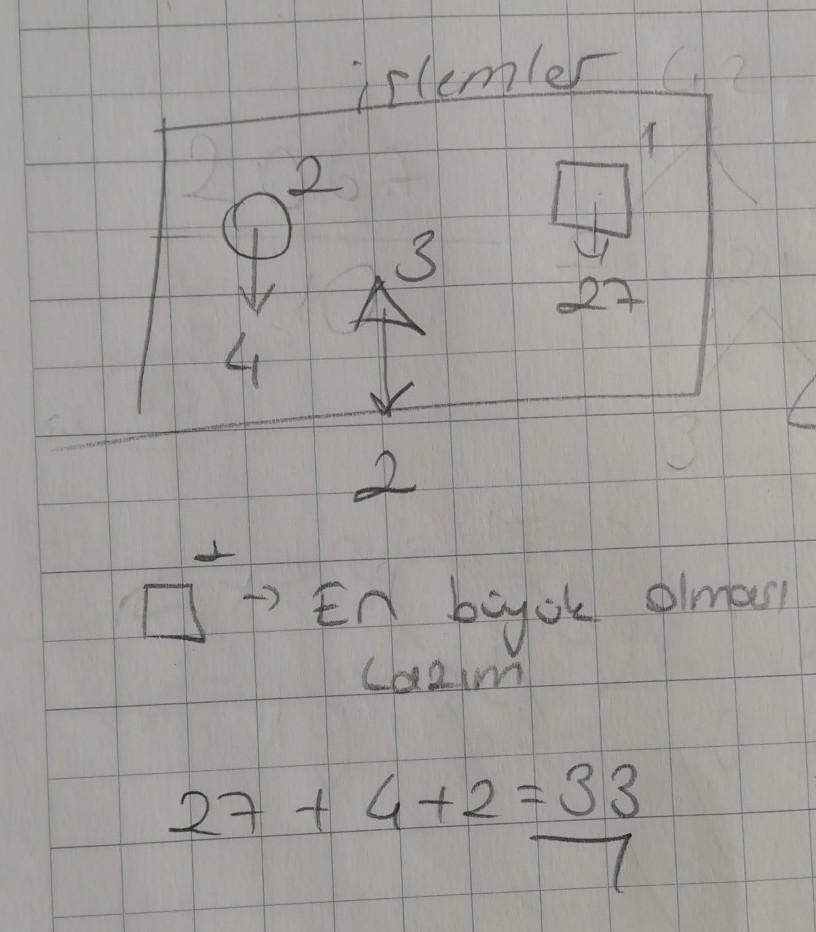 işlemler
2 1
3
4 27
2
1
→ En büyük olması
lazım
27 + 4 + 2 = 33